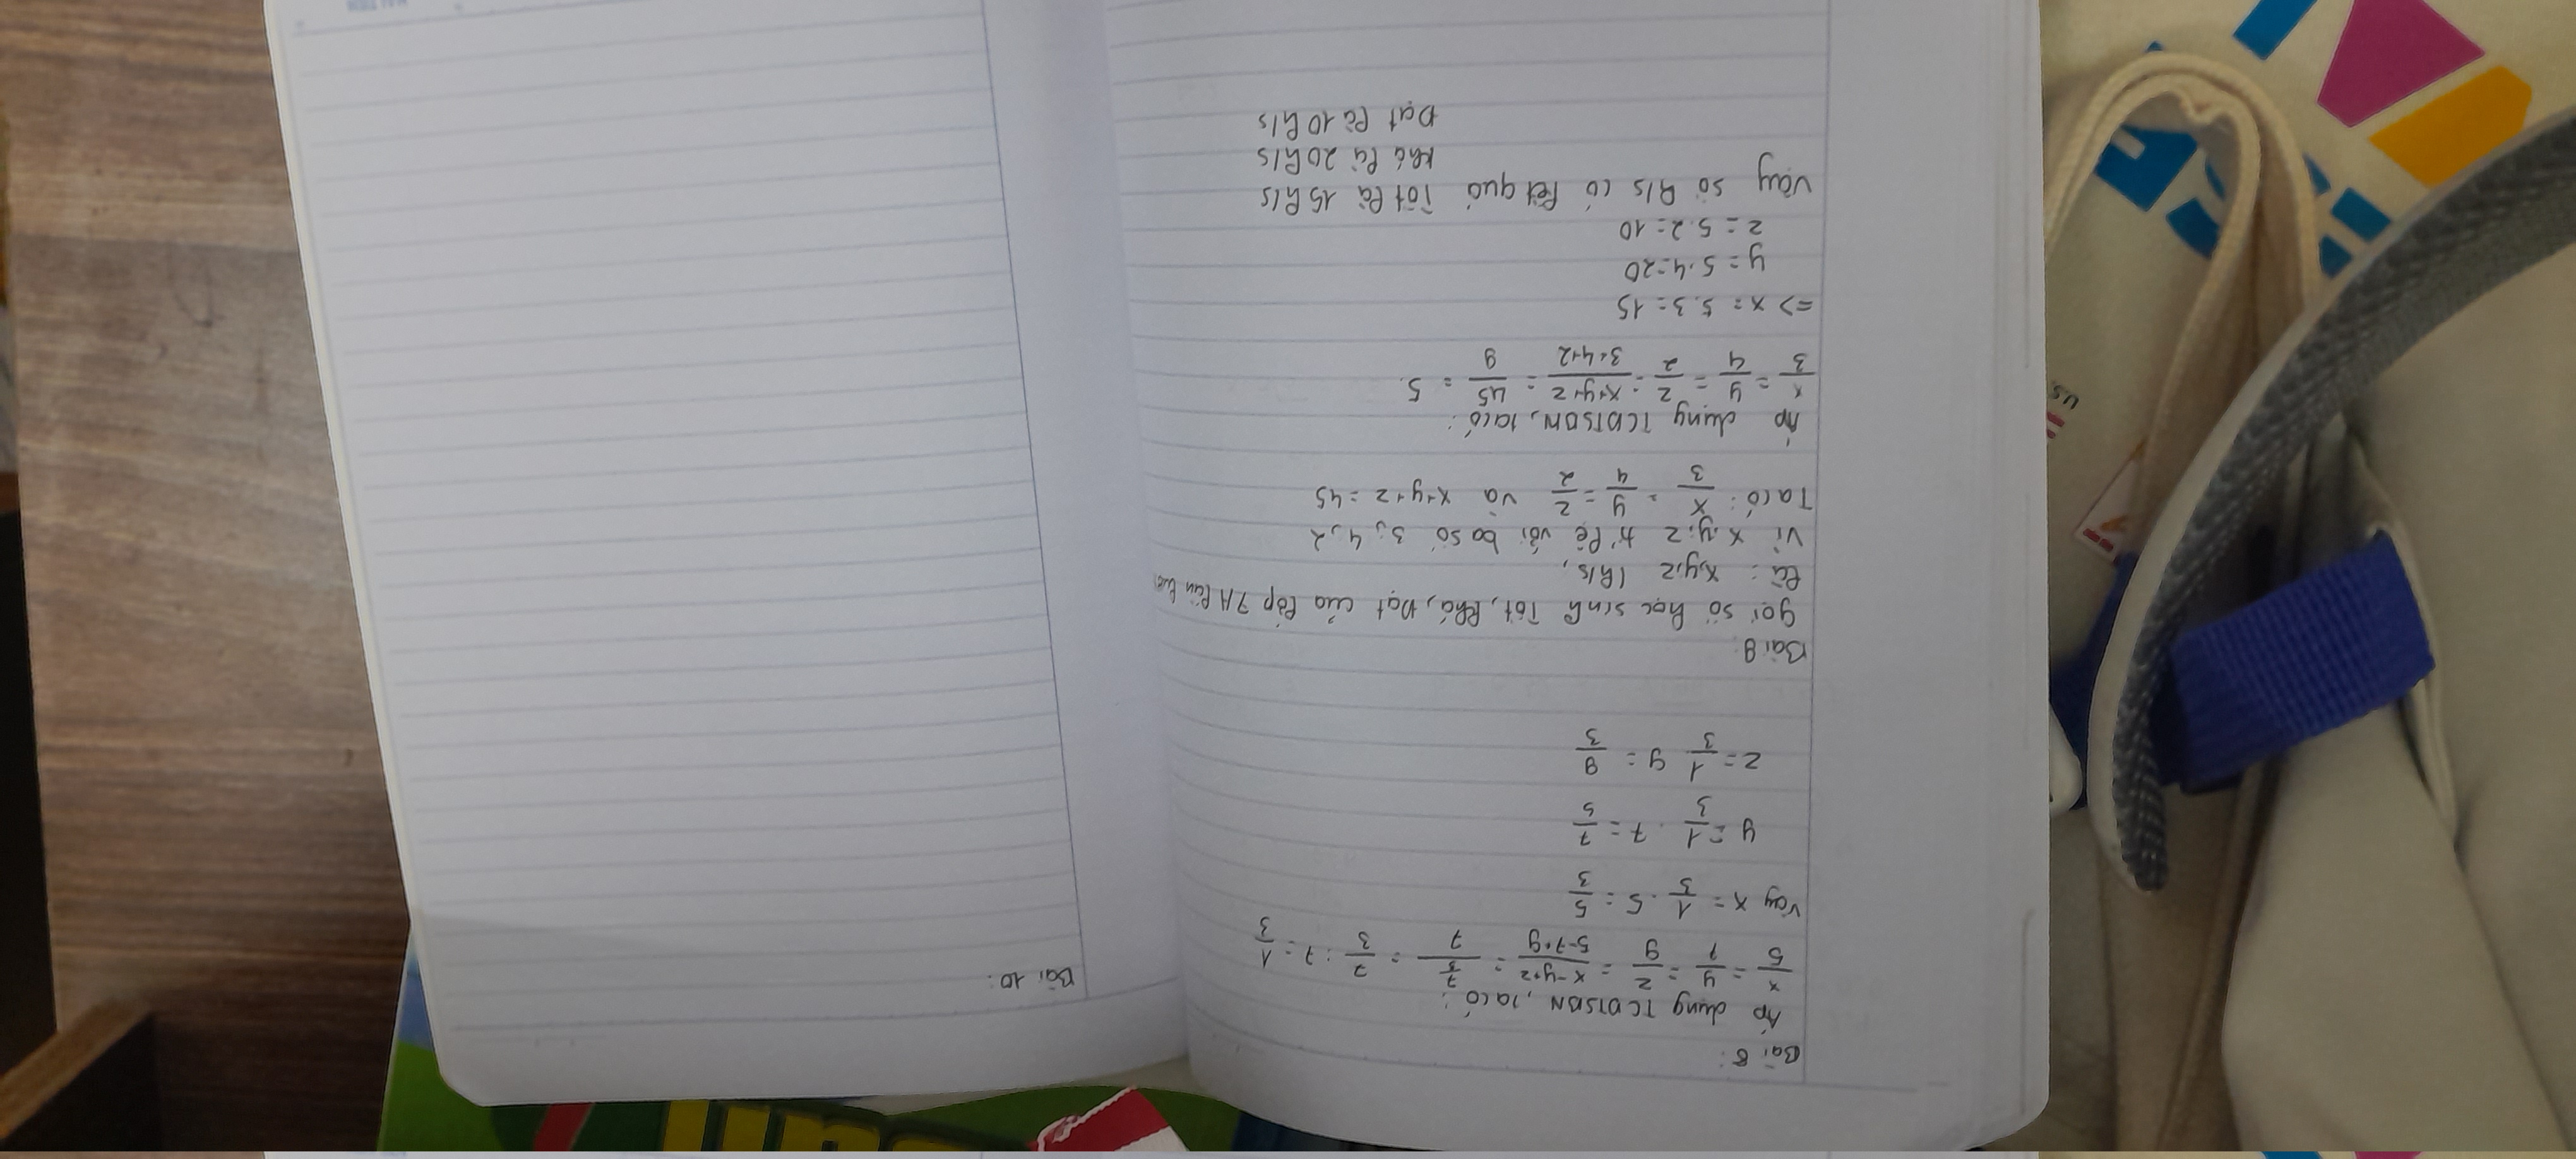 Bài 8:
Áp dụng TCDTSBN, ta có:
x/5 = y/7 = z/9 = x-y+z/5-7+9 = 7/3/7 = 7/3 : 7 = 1/3
Vậy x = 1/3 . 5 = 5/3
y = 1/3 . 7 = 7/5
z = 1/3 9 = 9/3
Bài 9
gọi số học sinh Tốt, Khá, Đạt của lớp 7A lần lượt
là: x,y,z (h/s,
Vì x,y,z tỉ lệ với ba số 3; 4; 2
Ta có: x/3 = y/4 = z/2 và x+y+z = 45
Áp dụng TCDTSBN, ta có:
x/3 = y/4 = z/2 = x+y+z/3+4+2 = 45/9 = 5
=> x = 5.3 = 15
y = 5.4 = 20
z = 5.2 = 10
Vậy số h/s có kết quả Tốt là 15 h/s
Khá là 20 h/s
Đạt là 10 h/s
Bài 10:
U.S.